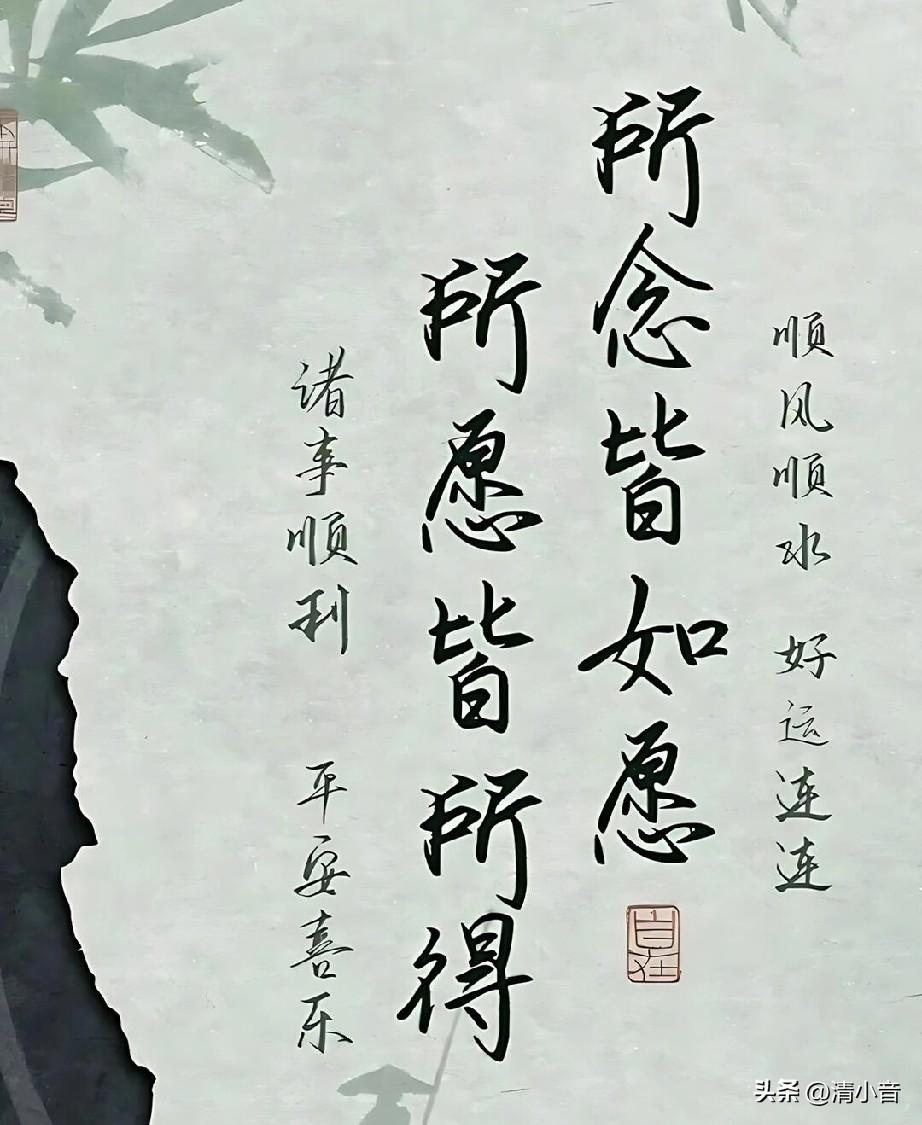 顺风顺水 好运连连
所念皆如愿
自在
所愿皆所得
诸事顺利 平安喜乐
头条 @清小音